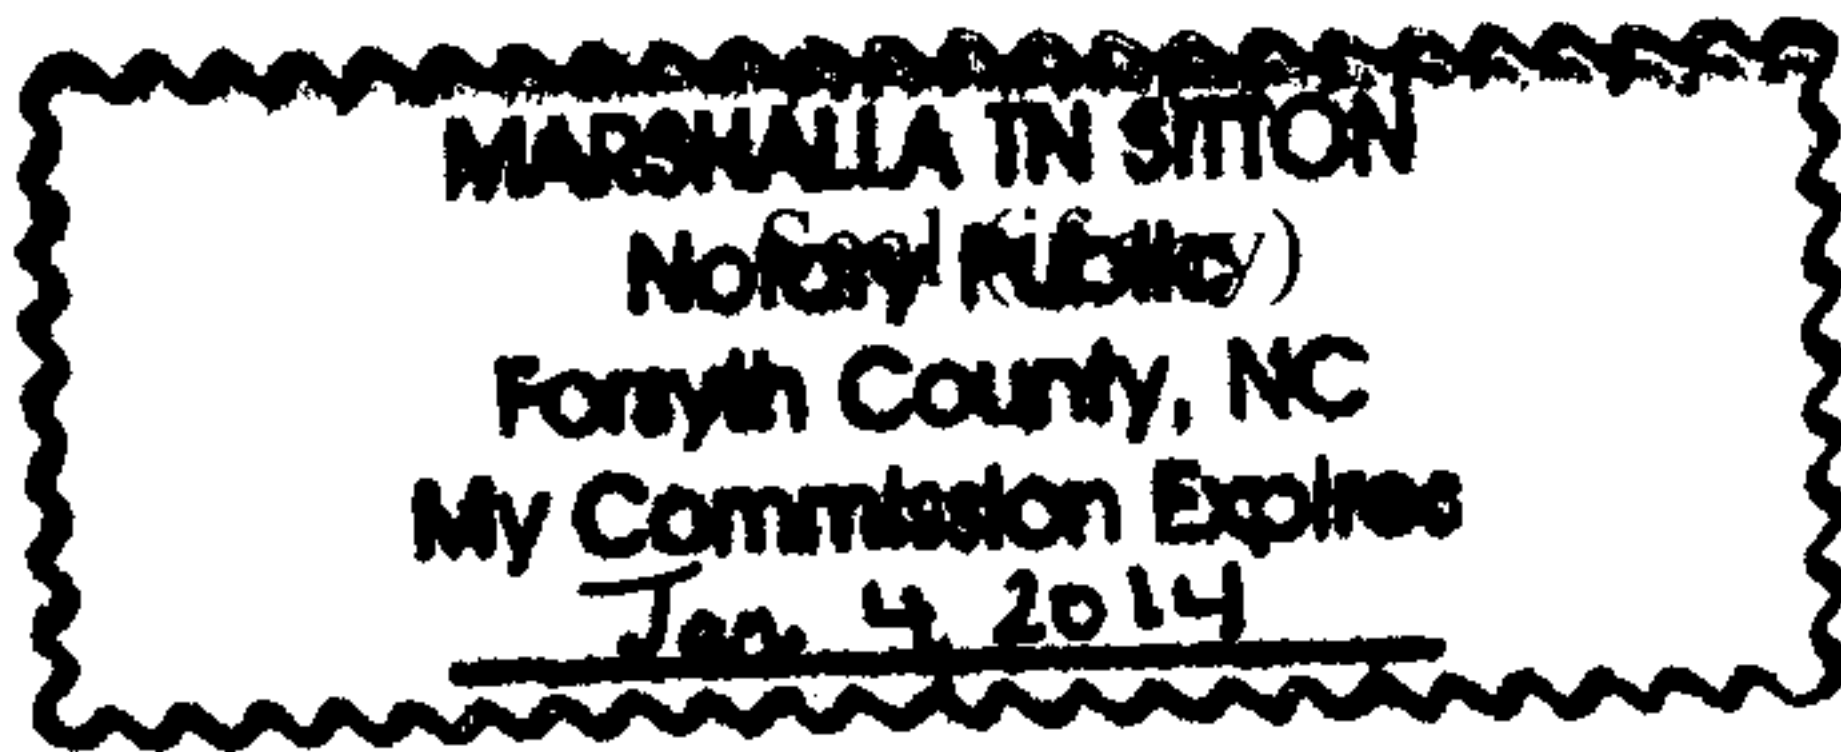 MARSHALLA TN SITTON
Notary Public
Seal (if any)
Forsyth County, NC
My Commission Expires
Jan. 4, 2014